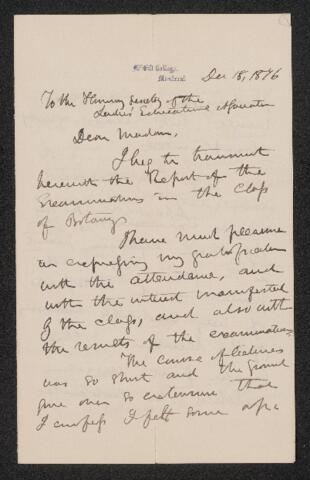 McGill College,
Montreal
Dec 18, 1876
To the Honorary Secretary of the
Ladies' Educational Association
Dear Madam,
I beg to transmit
herewith the Report of the
Examinations in the Class
of Botany
I have much pleasure
in expressing my gratification
with the attendance, and
with the interest manifested
by the class, and also with
the results of the examination
The course of lectures
was so short and the ground
gone over so extensive that
I confess I felt some